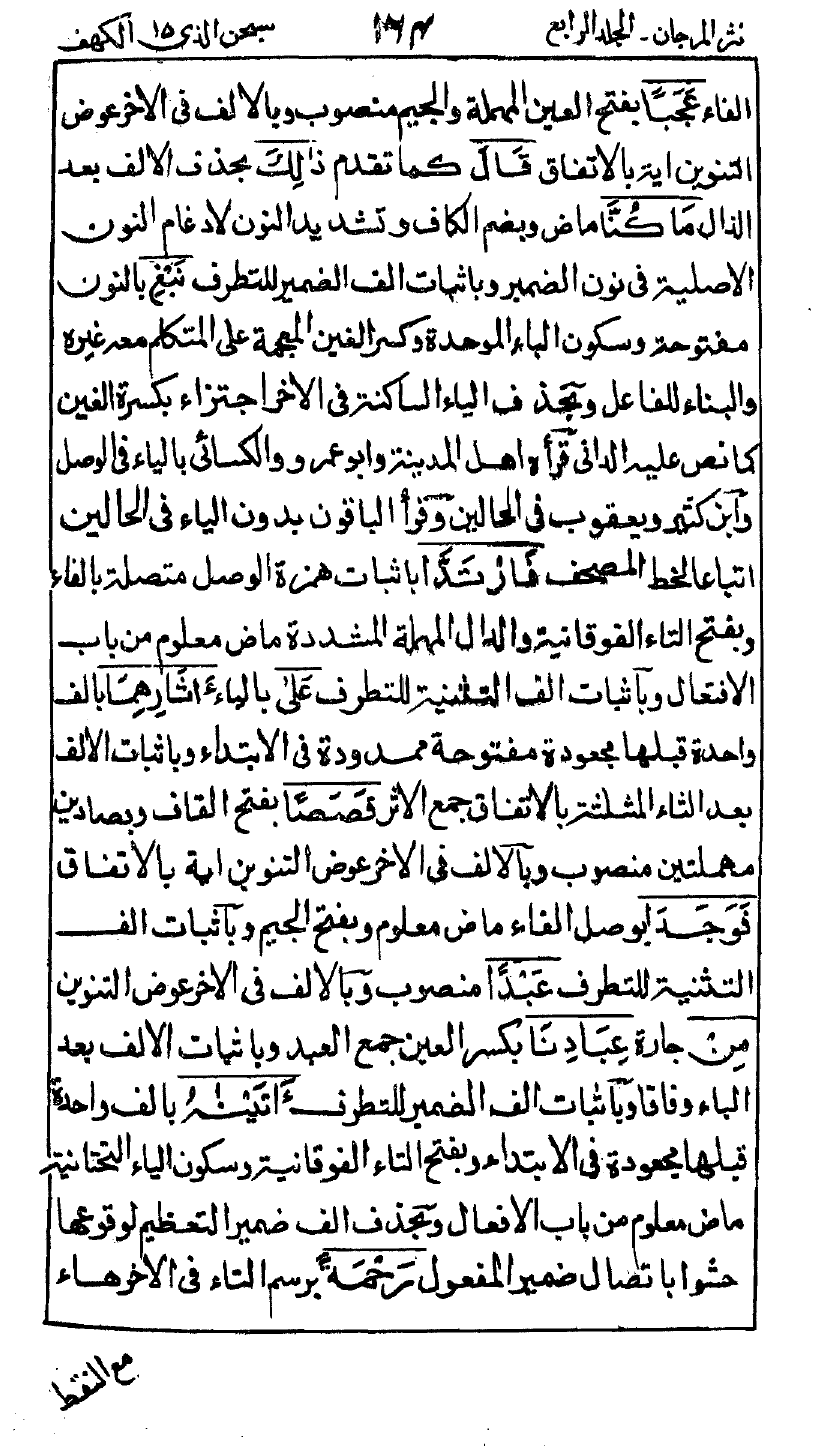 نثر المرجان - الجلد الرابع ١٦٤ سبحن الذي ١٥ الكهف
الفاء عَجَبًا بفتح العين المهملة والجيم منصوب وبالالف فى الاخر عوض
التنوين اية بالاتفاق قَالَ كما تقدم ذٰلِكَ بحذف الالف بعد
الذال مَا كُنَّا ماض وبضم الكاف وتشديد النون لادغام النون
الاصلية فى نون الضمير وباثبات الف الضمير للتطرف نَبْغِ بالنون
مفتوحة وسكون الباء الموحدة وكسر الغين المعجمة على المتكلم معه غيره
والبناء للفاعل وبحذف الياء الساكنة فى الاخر اجتزاء بكسرة الغين
كما نص عليه الدانى قرأه اهل المدينة وابو عمرو والكسائى بالياء فى الوصل
وابن كثير ويعقوب فى الحالين وقرأ الباقون بدون الياء فى الحالين
اتباعا لخط المصحف فَارْتَدَّا باثبات همزة الوصل متصلة بالفاء
وبفتح التاء الفوقانية والدال المهملة المشددة ماض معلوم من باب
الافتعال وباثبات الف التثنية للتطرف عَلٰى بالياء ءَاثَارِهِمَا بالف
واحدة قبلها مجعودة مفتوحة ممدودة فى الابتداء وباثبات الالف
بعد الثاء المثلثة بالاتفاق جمع الاثر قَصَصًا بفتح القاف وبصادين
مهملتين منصوب وبالالف فى الاخر عوض التنوين اية بالاتفاق
فَوَجَدَا بوصل الفاء ماض معلوم وبفتح الجيم وباثبات الف
التثنية للتطرف عَبْدًا منصوب وبالالف فى الاخر عوض التنوين
مِنْ جارة عِبَادِنَا بكسر العين جمع العبد وباثبات الالف بعد
الباء وفاقا وباثبات الف الضمير للتطرف ءَاتَيْنٰهُ بالف واحدة
قبلها مجعودة فى الابتداء وبفتح التاء الفوقانية وسكون الياء التحتانية
ماض معلوم من باب الافعال وبحذف الف ضمير التعظيم لوقوعها
حشوا باتصال ضمير المفعول رَحْمَةً برسم التاء فى الاخر هاء
مع النقط